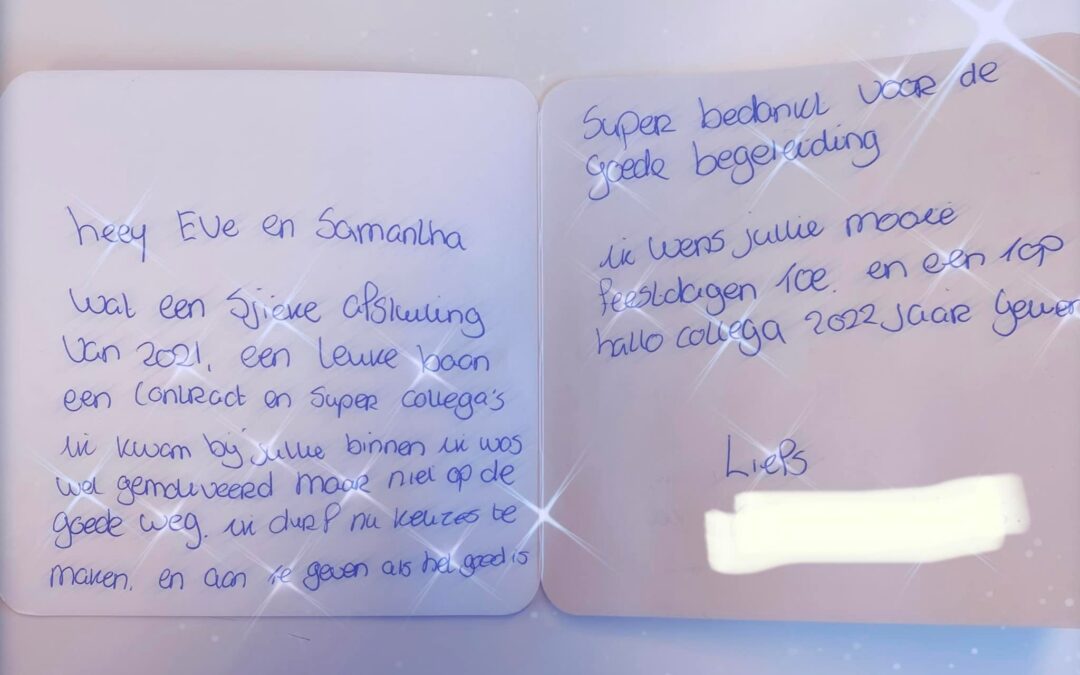 heey Eve en Samantha
Wat een Sjieke afsluiting
Van 2021, een leuke baan
een Contract en super collega's
ik kwam bij jullie binnen ik was
wel gemotiveerd maar niet op de
goede weg. ik durf nu keuzes te
maken. en aan te geven als het goed is
Super bedankt voor de
goede begeleiding
ik wens jullie mooie
feestdagen toe. en een top
hallo collega 2022 jaar
Liefs